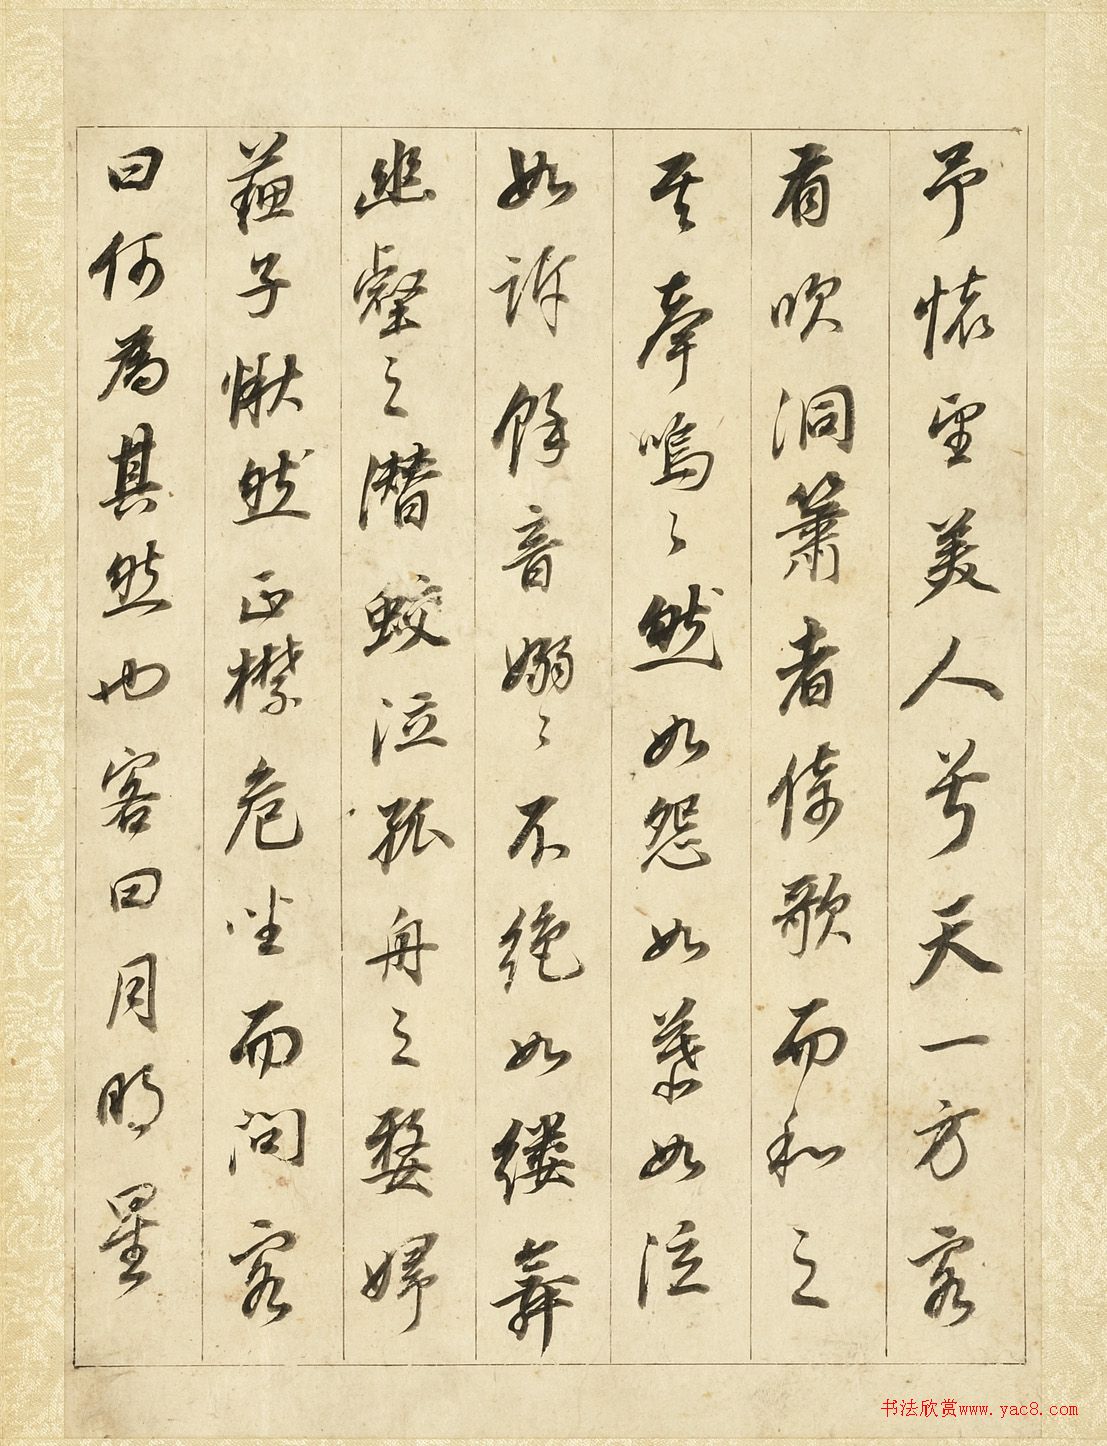 予懷望美人兮天一方客
有吹洞簫者倚歌而和之
其聲嗚〻然如怨如慕如泣
如訴餘音嫋〻不絕如縷舞
幽壑之潛蛟泣孤舟之嫠婦
蘇子愀然正襟危坐而問客
曰何為其然也客曰月明星
书法欣赏www.yac8.com